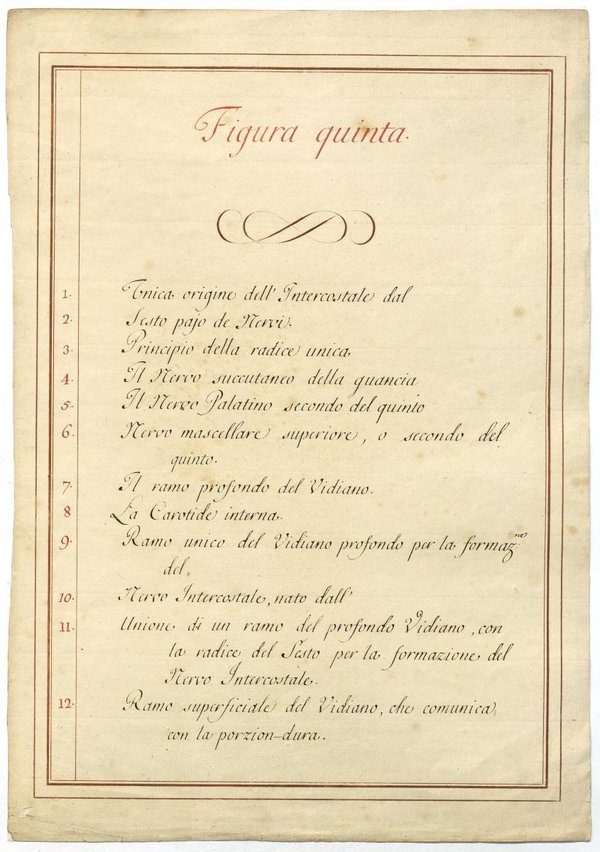 Figura quinta.
1. Unica origine dell' Intercostale dal
2. Sesto pajo de Nervi.
3. Principio della radice unica
4. Il Nervo succutaneo della guancia
5. Il Nervo Palatino secondo del quinto
6. Nervo mascellare superiore, o secondo del
quinto.
7. Il ramo profondo del Vidiano.
8 La Carotide interna.
9. Ramo unico del Vidiano profondo per la formaz.ne
del,
10. Nervo Intercostale, nato dall'
11. Unione di un ramo del profondo Vidiano, con
la radice del Sesto per la formazione del
Nervo Intercostale.
12. Ramo superficiale del Vidiano, che comunica
con la porzion-dura.